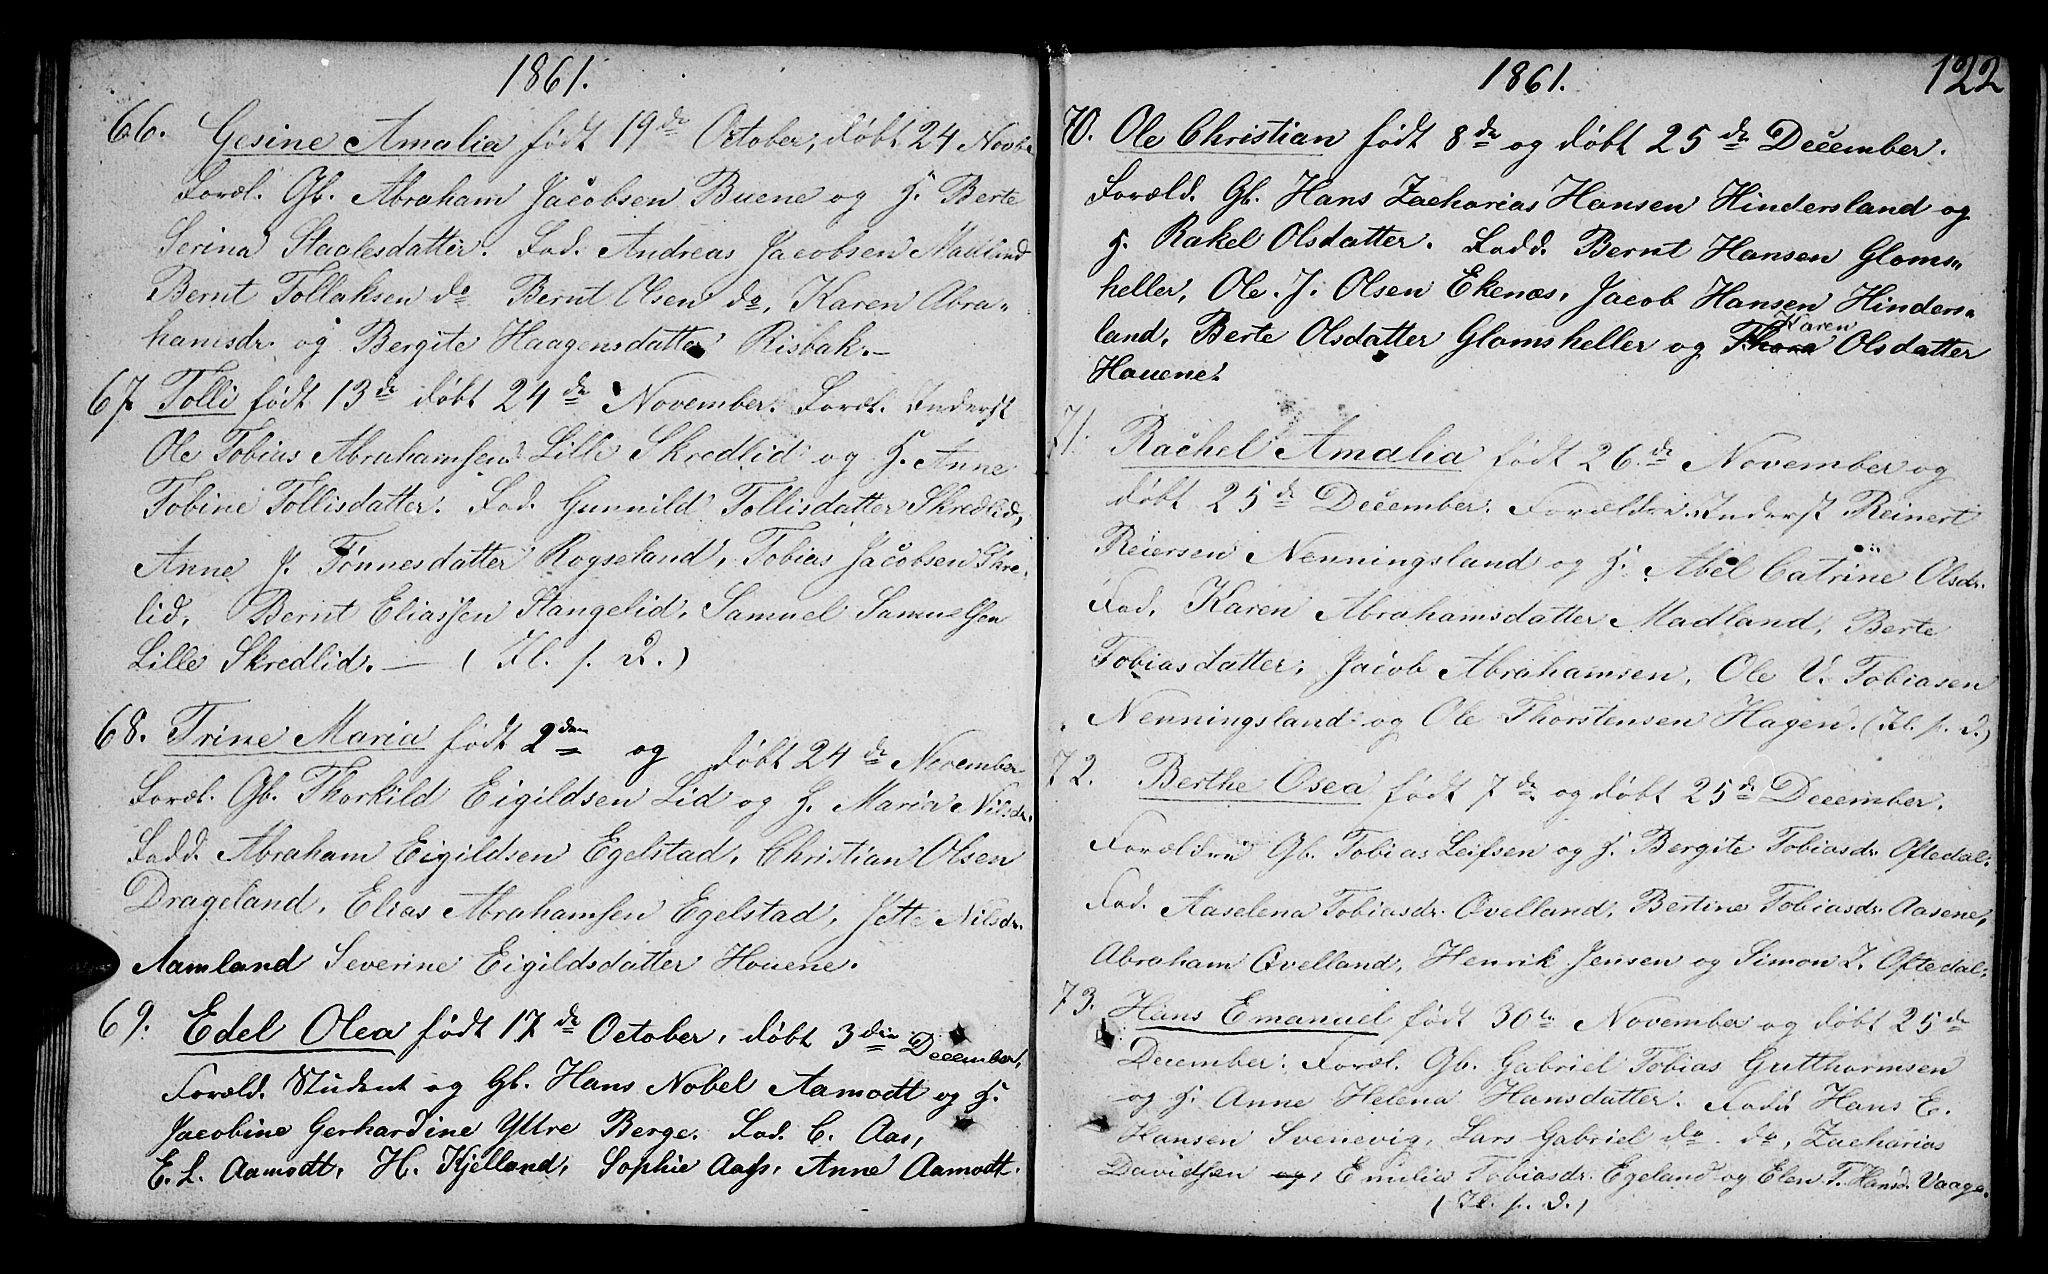 1861.
66. Gesine Amalia født 19de October, døbt 24 Novbr.
Foræl. Gb. Abraham Jacobsen Buene og H. Berte
Serina Staalesdatter. Fad. Andreas Jacobsen Madland
Bernt Tollaksen do Bernt Olsen do, Karen Abra-
hamsdr. og Bergite Haagensdatter Risbak.—
67. Tolli født 13de døbt 24de November. Foræl. Inderst
Ole Tobias Abrahamsen Lille Skredlid og H. Anne
Tobine Tollisdatter. Fad. Gunnild Tollisdatter Skredlid,
Anne J. Tønnesdatter Røyseland, Tobias Jacobsen Skre-
lid, Bernt Eliassen Stangelid, Samuel Samuelsen
Lille Skredlid.— (Fl. p. D.)
68. Trine Maria født 2den og døbt 24de November
Foræl. Gb. Thorkild Eigildsen Lid og H. Maria Nilsdr.
Fadd. Abraham Eigildsen Egelstad, Christian Olsen
Drageland, Elias Abrahamsen Egelstad, Jette Nilsdr.
Aamland Severine Eigildsdatter Houene.
69. Edel Olea født 17de October, døbt 3die December,
Foræld. Student og Gb. Hans Nobel Aamodt og H.
Jacobine Gerhardine Yttre Berge. Fad. C. Aas,
E. L. Aamodt, H. Kjelland, Sophie Aass, Anne Aamodt.
1861. 122
70. Ole Christian født 8de og døbt 25de December.
Foræld. Gb. Hans Zacharias Hansen Hindersland og
H. Rakel Olsdatter. Fadd. Bernt Hansen Gloms-
heller, Ole. J. Olsen Ekenæs, Jacob Hansen Hinders-
land, Berte Olsdatter Glomsheller og Thora Karen Olsdatter
Houene.
71. Rachel Amalia født 26de November og
døbt 25de December. Forældre Inderst Reinert
Reiersen Nenningsland og H. Abel Catrine Olsdr.
Fad. Karen Abrahamsdatter Madland, Berte
Tobiasdatter, Jacob Abrahamsen, Ole V. Tobiasen
Nenningsland og Ole Thorstensen Hagen. (Fl. p. D.)
72. Berthe Osea født 7de og døbt 25de December.
Forældre Gb. Tobias Leifsen og H. Bergite Tobiasdr. Oftedal.
Fad. Aaselena Tobiasdr. Øvelland, Bertine Tobiasdr. Aasene,
Abraham Øvelland, Henrik Jensen og Simon T. Oftedal.
73. Hans Emanuel født 30te November og døbt 25de
December. Foræl. Gb. Gabriel Tobias Gutthormsen
og H. Anne Helena Hansdatter. Fadd. Hans E.
Hansen Svenevig, Lars Gabriel do do, Zacharias
Davidsen og, Emilia Tobiasdr. Egeland og Elen T. Hansd. Vaage.
(Fl. p. D.)